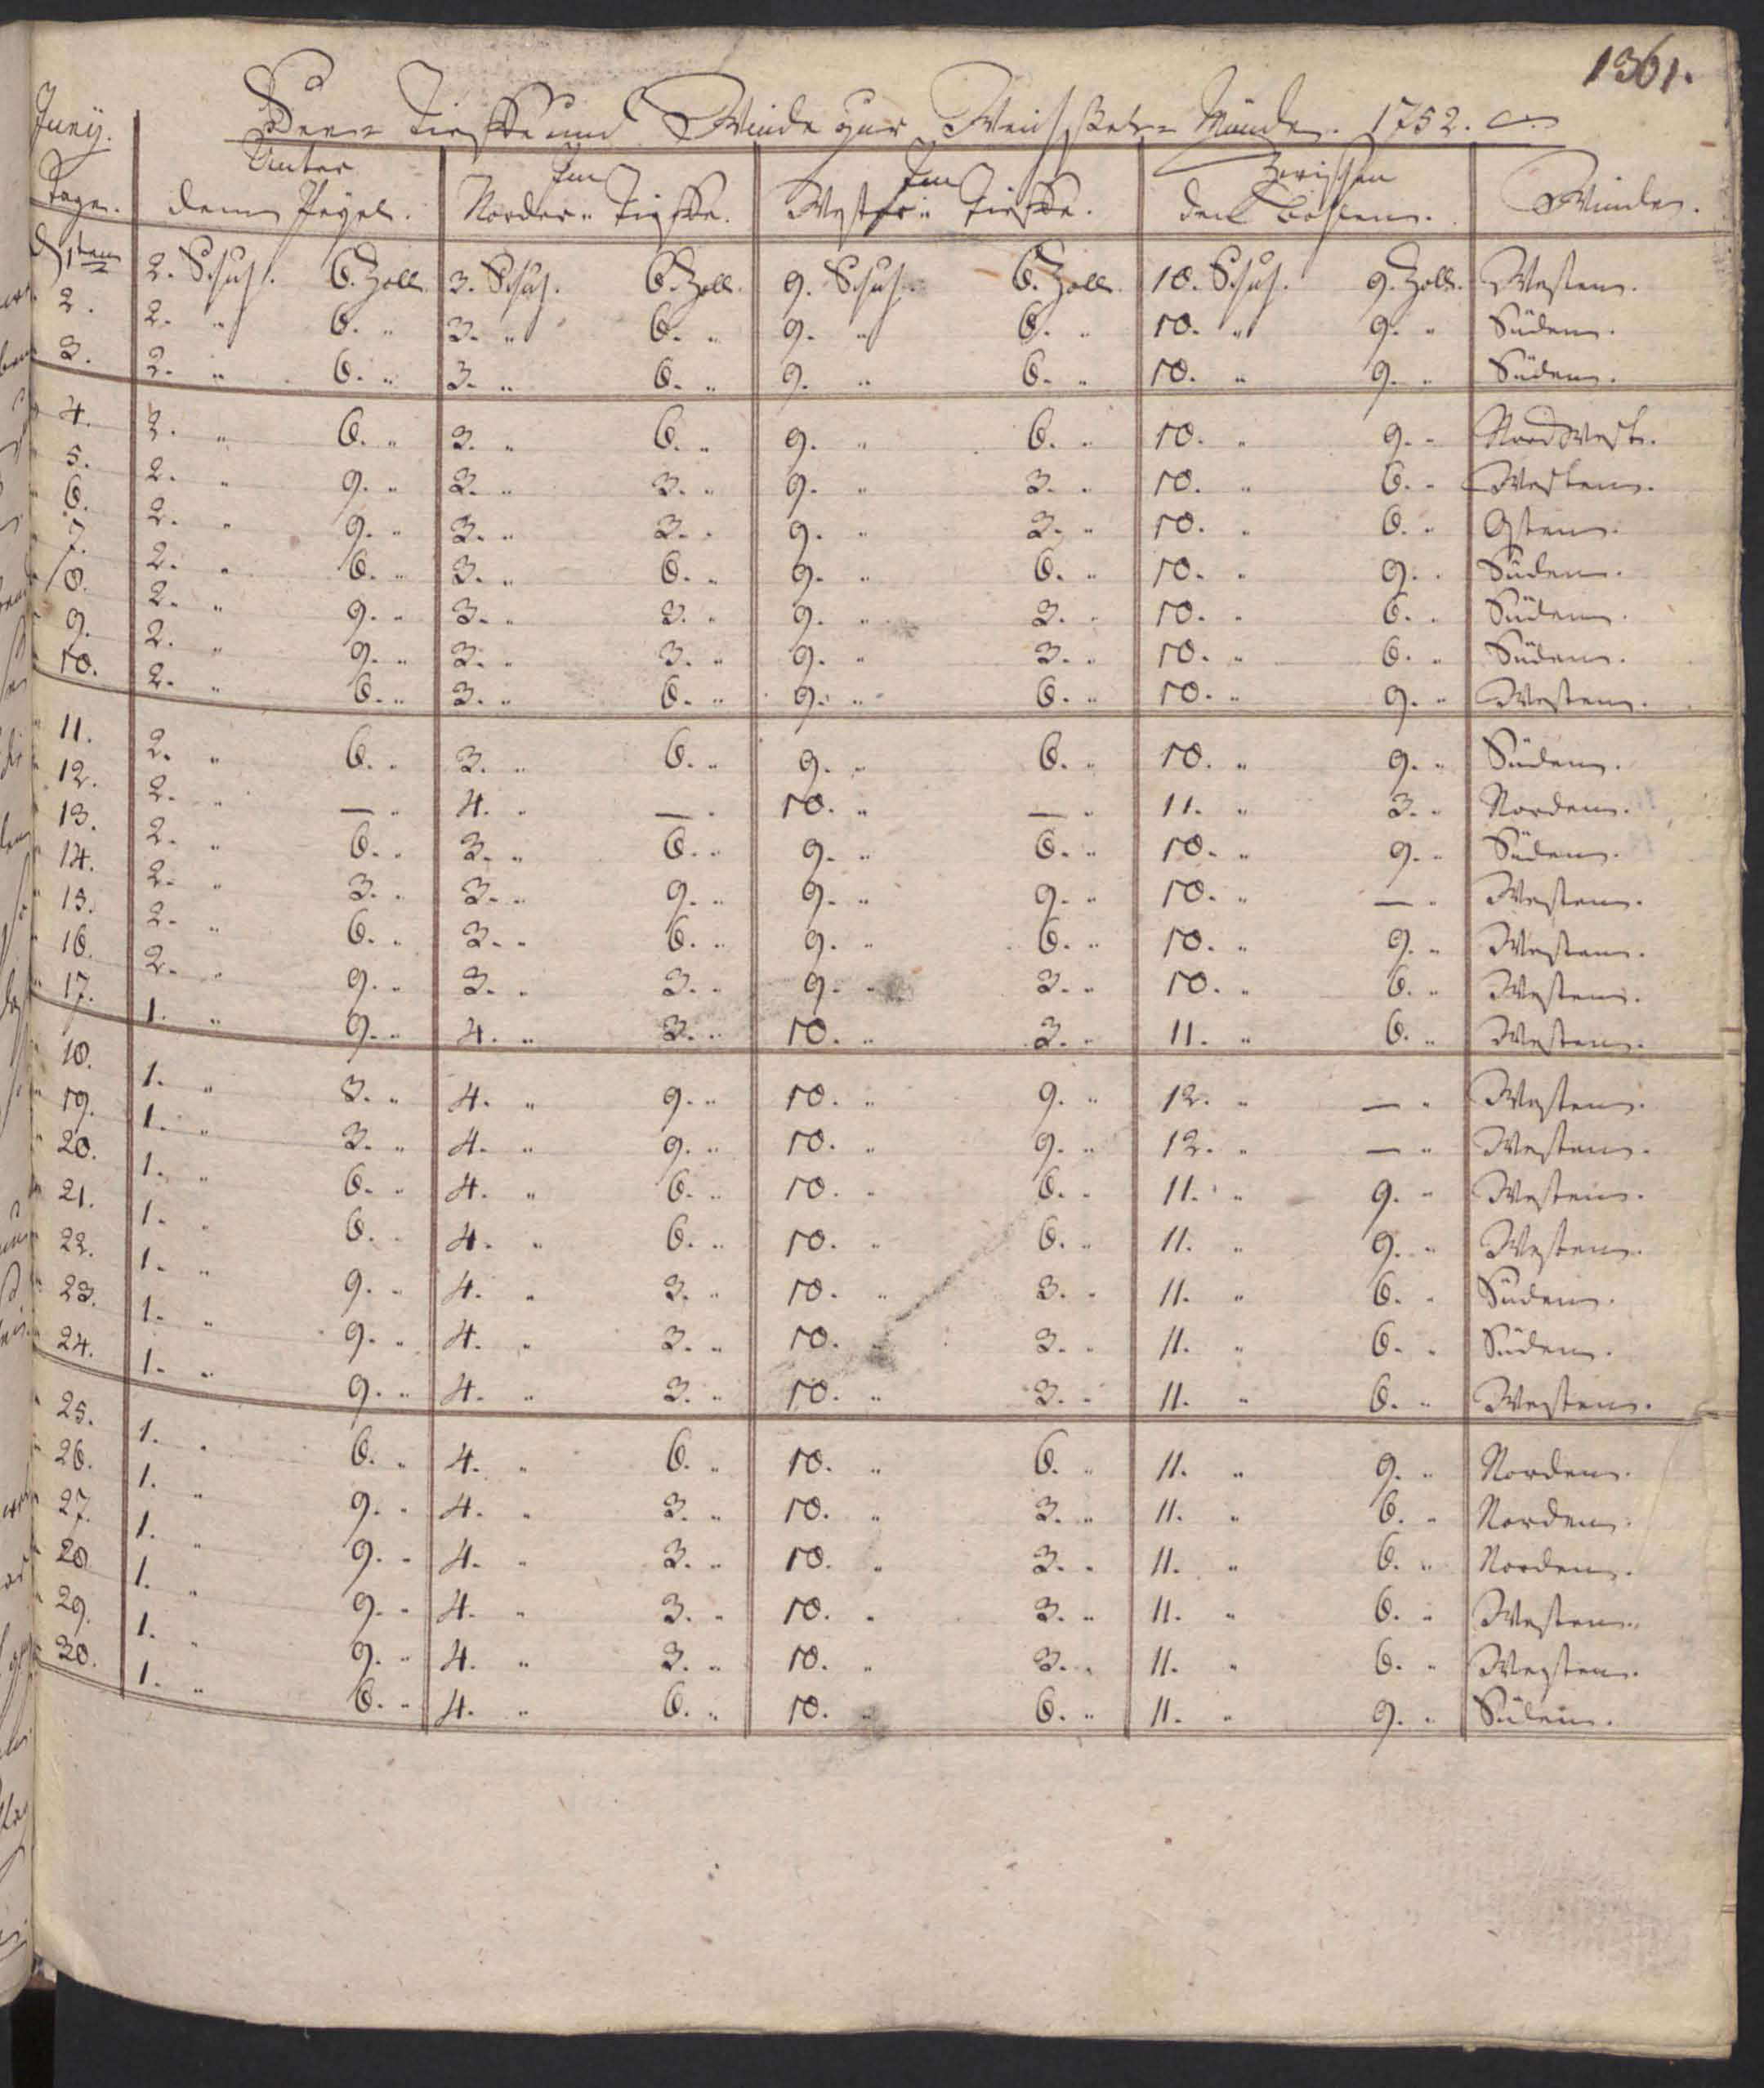 1361.
Juny. See- Tieffe und Winde zur Weichssel- Münde. 1752.
Tage. Unter dem Pegel. Im Norder- Tieffe. Im Wester- Tieffe. Zwischen den Winde.
d 1ten 2. Schuh. 6. Zoll. 3. Schuh. 6. Zoll. 9. Schuh. 6. Zoll. 10. Schuh. 9. Zoll. Westen.
" 2. 2. " 6. " 3. " 6. " 9. " 6. " 10. " 9. " Süden.
" 3. 2. " 6. " 3. " 6. " 9. " 6. " 10. " 9. " Süden.
" 4. 2. " 6. " 3. " 6. " 9. " 6. " 10. " 9. " NordWest.
" 5. 2. " 9. " 3. " 3. " 9. " 3. " 10. " 6. " Westen.
" 6. 2. " 9. " 3. " 3. " 9. " 3. " 10. " 6. " Osten.
" 7. 2. " 6. " 3. " 6. " 9. " 6. " 10. " 9. " Süden.
" 8. 2. " 9. " 3. " 3. " 9. " 3. " 10. " 6. " Süden.
" 9. 2. " 9. " 3. " 3. " 9. " 3. " 10. " 6. " Süden.
" 10. 2. " 6. " 3. " 6. " 9. " 6. " 10. " 9. " Westen.
" 11. 2. " 6. " 3. " 6. " 9. " 6. " 10. " 9. " Süden.
" 12. 2. " — " 4. " — " 10. " — " 11. " 3. " Norden.
" 13. 2. " 6. " 3. " 6. " 9. " 6. " 10. " 9. " Süden.
" 14. 2. " 3. " 3. " 9. " 9. " 9. " 10. " — " Westen.
" 15. 2. " 6. " 3. " 6. " 9. " 6. " 10. " 9. " Westen.
" 16. 2. " 9. " 3. " 3. " 9. " 3. " 10. " 6. " Westen.
" 17. 1. " 9. " 4. " 3. " 10. " 3. " 11. " 6. " Westen.
" 18. 1. " 3. " 4. " 9. " 10. " 9. " 12. " — " Westen.
" 19. 1. " 3. " 4. " 9. " 10. " 9. " 12. " — " Westen.
" 20. 1. " 6. " 4. " 6. " 10. " 6. " 11. " 9. " Westen.
" 21. 1. " 6. " 4. " 6. " 10. " 6. " 11. " 9. " Westen.
" 22. 1. " 9. " 4. " 3. " 10. " 3. " 11. " 6. " Süden.
" 23. 1. " 9. " 4. " 3. " 10. " 3. " 11. " 6. " Süden.
" 24. 1. " 9. " 4. " 3. " 10. " 3. " 11. " 6. " Westen.
" 25. 1. " 6. " 4. " 6. " 10. " 6. " 11. " 9. " Norden.
" 26. 1. " 9. " 4. " 3. " 10. " 3. " 11. " 6. " Norden.
" 27. 1. " 9. " 4. " 3. " 10. " 3. " 11. " 6. " Norden.
" 28 1. " 9. " 4. " 3. " 10. " 3. " 11. " 6. " Westen.
" 29. 1. " 9. " 4. " 3. " 10. " 3. " 11. " 6. " Westen.
" 30. 1. " 6. " 4. " 6. " 10. " 6. " 11. " 9. " Süden.